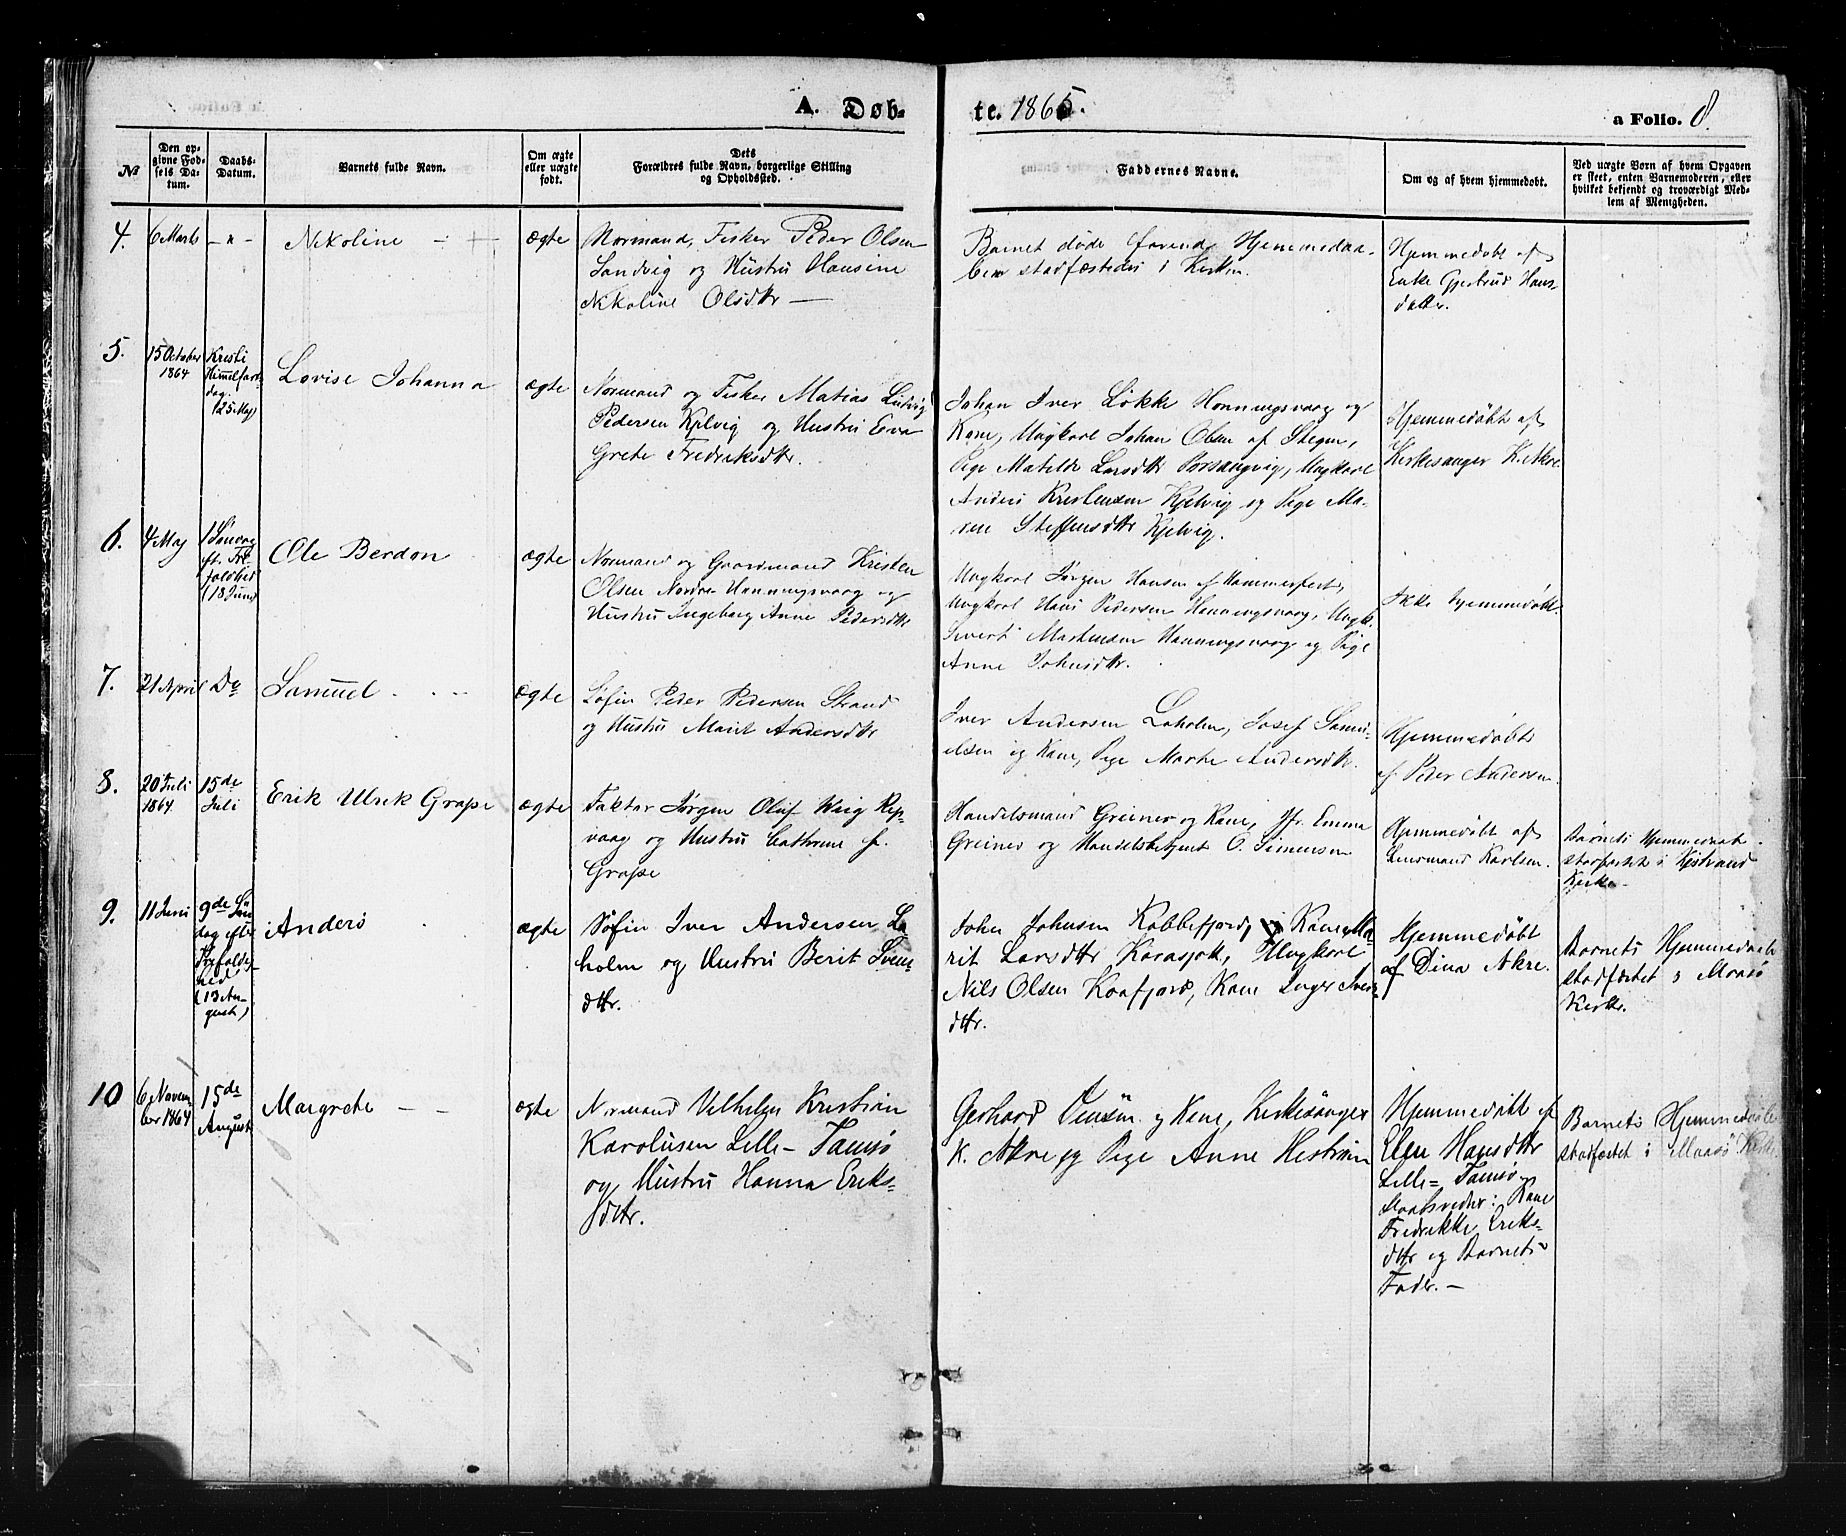 A. Døb-
te. 1865.
a Folio. 8.
№
Den op-
givne Fød-
sels Da-
tum.
Daabs-
Datum.
Barnets fulde Navn.
Om ægte
eller uægte
født.
Dets
Forældres fulde Navn, borgerlige Stilling
og Opholdssted.
Faddernes Navne.
Om og af hvem hjemmedøbt.
Ved uægte Børn af hvem Opgaven
er skeet, enten Barnemoderen, eller
hvilket bekjendt og troværdigt Med-
lem af Menigheden.
4.
6 Marts
- " -
Nikoline - +
ægte
Normand, Fisker Peder Olsen
Sandvig og Hustru Hansine
Nikoline Olsdtr —
Barnet døde førend Hjemmedaa-
ben stadfæstedes i Kirken.
Hjemmedøbt af
Enke Gjertrud Hans-
datter.
5.
15 October
1864
Kristi
Himmelfart
dag.
(25 Maj)
Lovise Johanna
ægte
Normand og Fisker Matias Ludvig
Pedersen Kjelvig og Hustru Eva
Grete Fredriksdtr.
Johan Iver Løkke Honningsvaag og
Kone, Ungkarl Johan Olsen af Stegen,
Pige Matilde Larsdtr Porsangvig, Ungkarl
Anders Kristensen Kjelvig og Pige Ma-
ren Steffensdtr Kjelvig.
Hjemmedøbt af
Kirkesanger K. Akre.
6.
4 Maj
1 Søndag
ef. Tre-
foldhed
(18 Juni)
Ole Berdon
ægte
Normand og Gaardmand Kristen
Olsen Nordre Honningsvaag og
Hustru Ingeborg Anne Pedersdtr
Ungkarl Jørgen Hansen af Hammerfest,
Ungkarl Hans Pedersen Honningsvaag, Ungk.
Sivert Mortensen Honningsvaag og Pige
Anne Johnsdtr.
Ikke hjemmedøbt.
7.
21 April
Do
Samuel
ægte
Søfin Peder Pedersen Strand
og Hustru Marit Andersdtr
Iver Andersen Laholm, Josef Samu-
elsen og Kone, Pige Marte Andersdtr.
Hjemmedøbt
af Peder Andersen
8.
20 Juli
1864
15de
Juli
Erik Ulrik Grape
ægte
Faktor Jørgen Oluf Wiig Rep-
vaag og Hustru Cathrine f.
Grape
Handelsmand Greiner og Kone, Jfr. Emma
Greiner og Handelsbetjent O. Simensen
Hjemmedøbt af
Lensmand Karlsen.
Barnets Hjemmedaab
stadfæstet i Kistrand
Kirke.
9.
11 Juni
9de Søn
dag efter
Trefoldig-
hed
(13 Au-
gust)
Anders
ægte
Søfin Iver Andersen La-
holm og Hustru Berit Svens-
dtr.
John Johnsen Kobbefjord, Kone Ma-
rit Larsdtr Karasjok, Ungkarl
Nils Olsen Kaafjord, Kone Inger Ivers-
dtr.
Hjemmedøbt
af Dina Akre.
Barnets Hjemmedaab
stadfæstet i Maasø
Kirke.
10
6 Novem-
ber 1864
15de
August
Margrete - -
ægte
Normand Vilhelm Kristian
Karolusen Lille- Tamsø
og Hustru Hanna Eriks-
dtr.
Gerhard Jensen og Kone, Kirkesanger
K. Akre og Pige Anne
Hjemmedøbt af
Elen Hansdtr
Lille= Tamsø.
Daabsvidner: Kone
Fredrikke Eriks-
dtr og Barnets
Fader. —
Barnets Hjemmedaab
stadfæstet i Maasø Kirke.